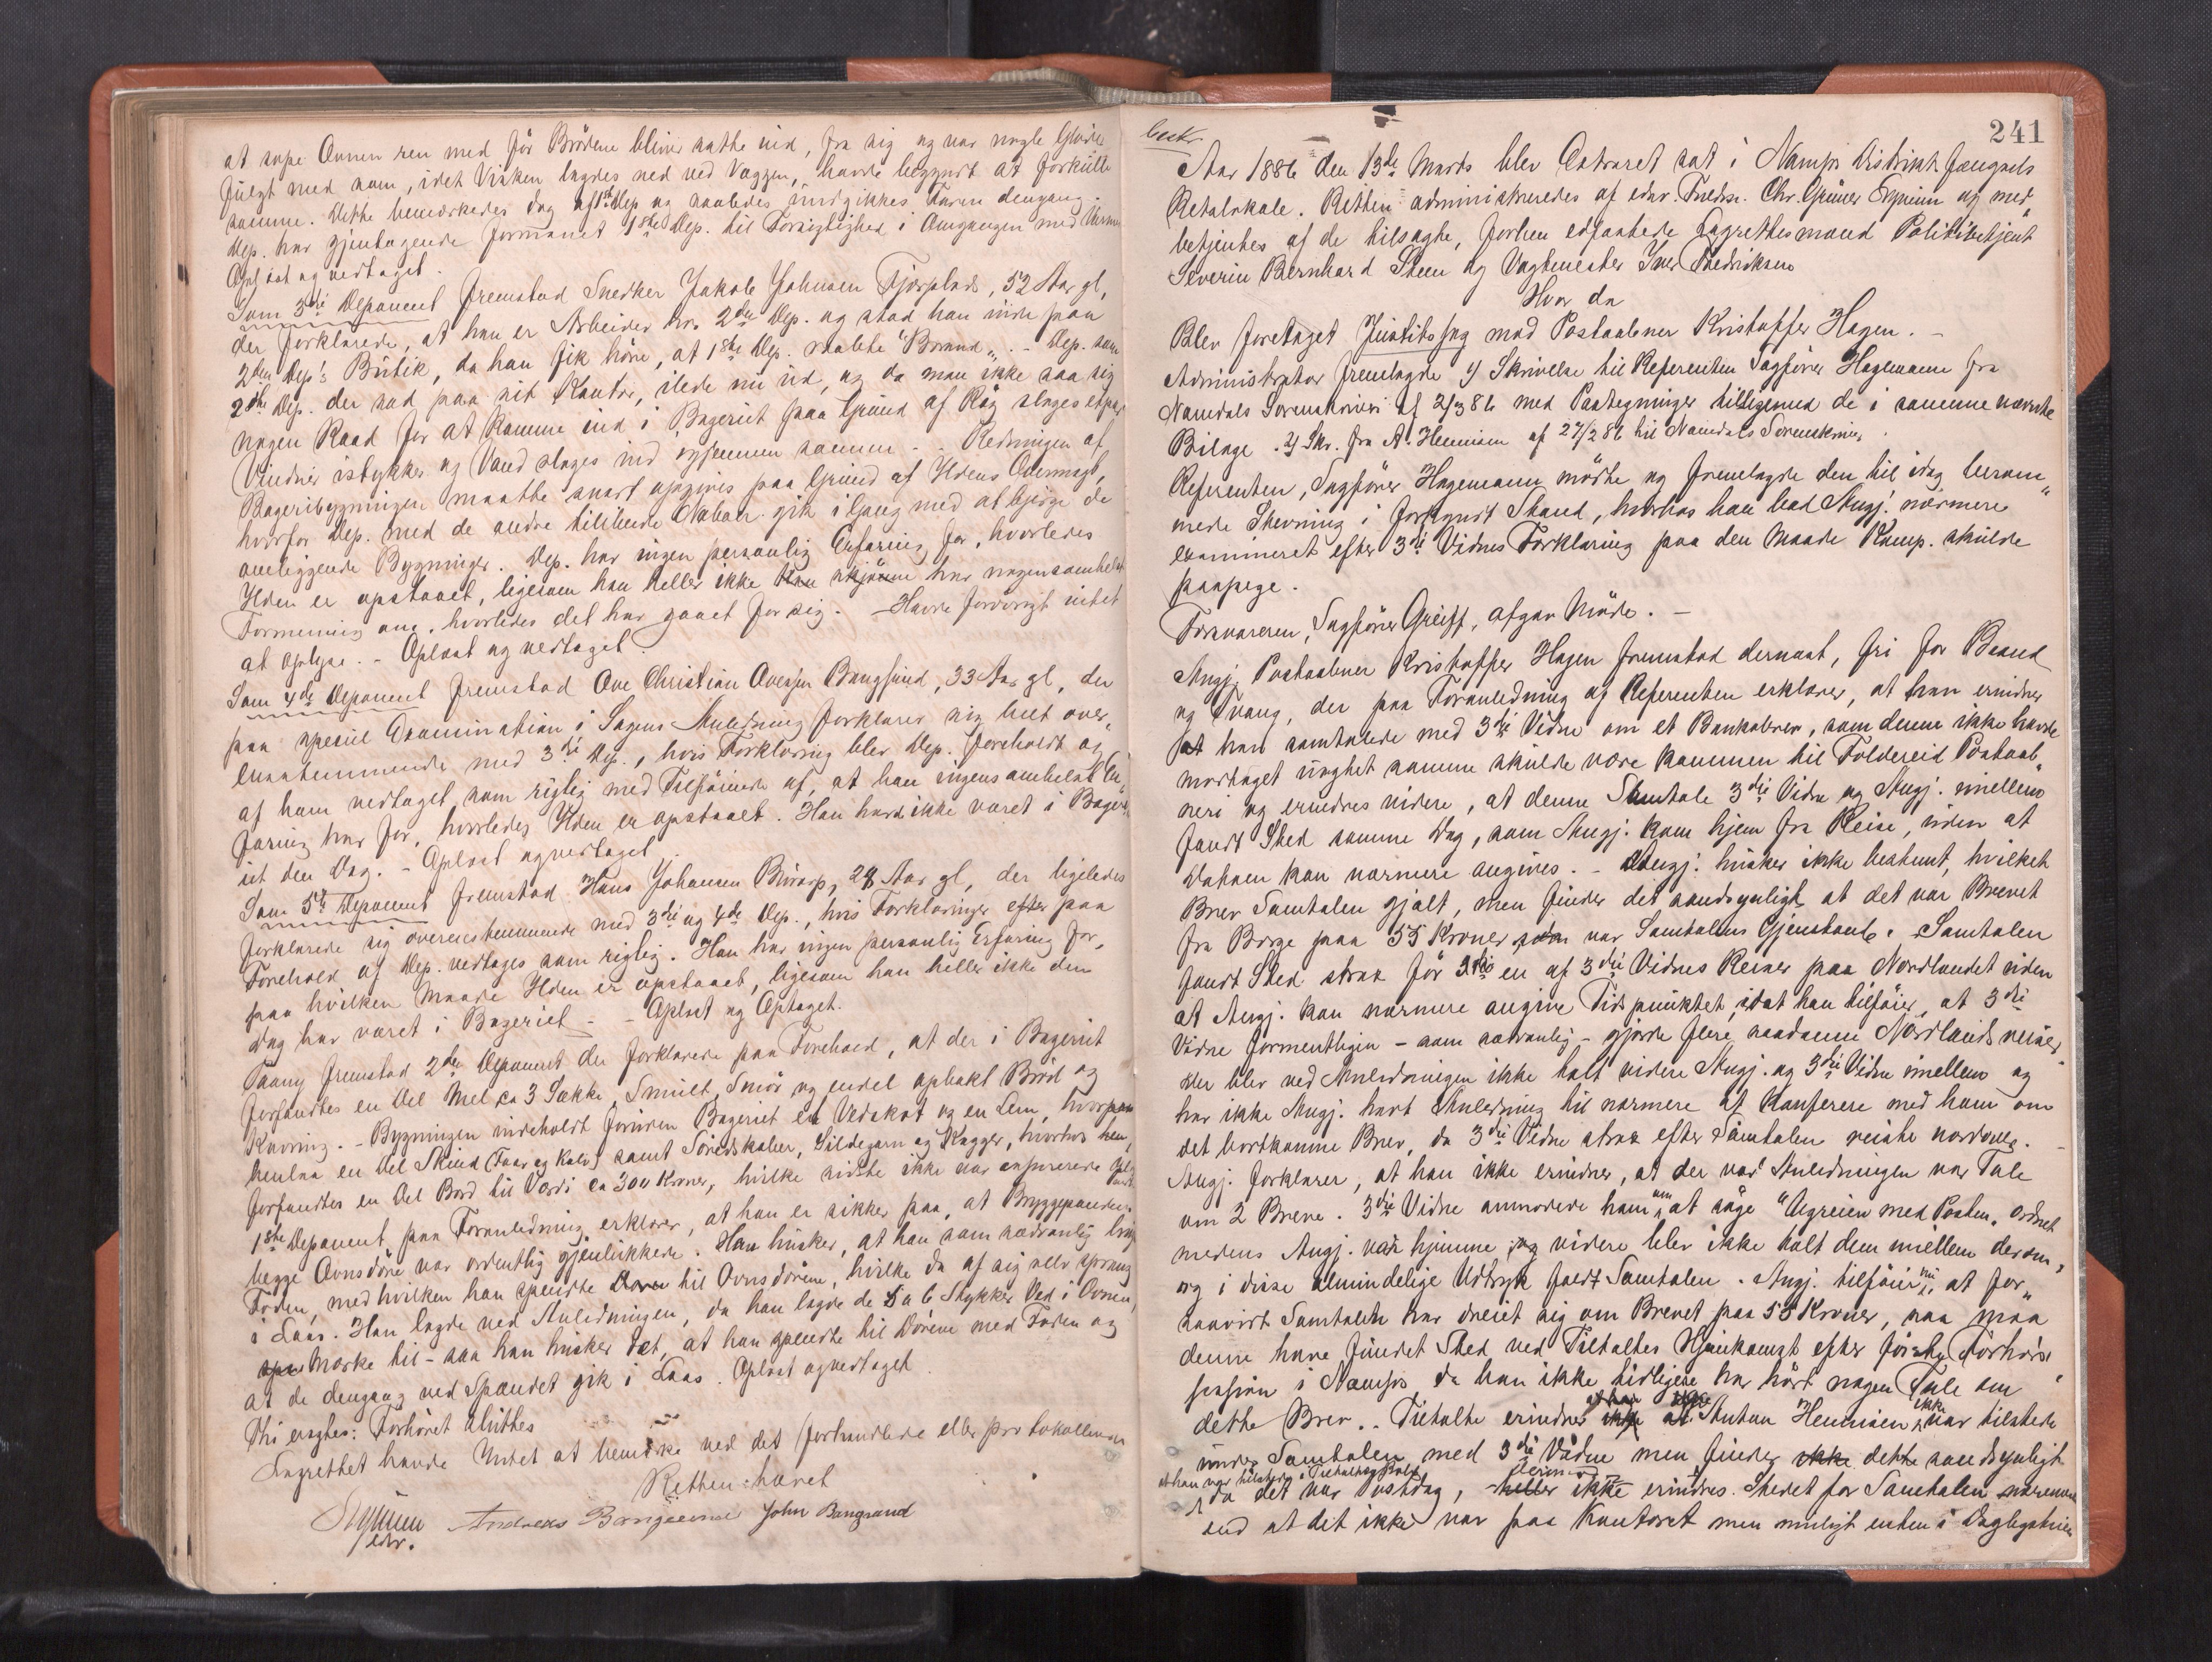 at sope Ovnen ren med før Brødene bliver satte ind, fra sig og var nogle Gløder
fulgt med som, idet Visken lagdes ned ved Væggen, havde begyndt at forkulle
samme. Dette bemærkedes dog af 1ste Dep og saaledes undgikkes Faren dengang.
Dep. har gjentagende formanet 1ste Dep. til Forsigtighed i Omgangen med Varme
Oplæst og vedtaget.
Som 3die Deponent fremstod Snedker Jakob Johnsen Fjærplads, 52 Aar gl,
der forklarede, at han er Arbeider hos 2den Dep. og stod han inde paa
2den Dep's Butik, da han fik høre, at 1ste Dep. raabte "Brand". - Dep. som
2den Dep. der sad paa sit Kontor, ilede nu ud, og da man ikke saa sig
nogen Raad for at komme ind i Bageriet paa Grund af Røg sloges et par
Vinduer istykker og Vand sloges ind igjennem samme. - Redningen af
Bageribygningen maatte snart opgives paa Grund af Ildens Overmagt,
hvorfor Dep. med de andre tililende Naboer gik igang med at bjerge de
omliggende Bygninger. Dep. har ingen personlig Erfaring for, hvorledes
Ilden er opstaaet, ligesom han heller ikke kan skjønne har nogensomhelst
Formening om, hvorledes det har gaaet for sig. - Havde forøvrigt intet
at oplyse. - Oplæst og vedtaget.
Som 4de Deponent fremstod Ove Christian Ovesen Bangsund, 33 Aar gl, der
paa speciel Examination i Sagens Anledning forklarer sig helt over„
ensstemmende med 3die Dep., hvis Forklaring blev Dep. foreholdt og
af ham vedtaget som rigtig med Tilføiende af, at han ingensomhelst Er„
faring har for, hvorledes Ilden er opstaaet. Han havde ikke været i Bageri„
et den Dag. - Oplæst og vedtaget.
Som 5te Deponent fremstod Hans Johansen 28 Aar gl, der ligeledes
forklarede sig overensstemmende med 3die og 4de Dep., hvis Forklaringer efter paa
Forehold af Dep. vedtages som rigtig. Han har ingen personlig Erfaring for,
paa hvilken Maade Ilden er opstaaet, ligesom han heller ikke den
Dag har været i Bageriet - - Oplæst og Optaget.
Paany fremstod 2den Deponent der forklarede paa Forehold, at der i Bageriet
forfandtes en Del Mel ca 3 Sække, Smult, Smør og endel opbakt Brød og
Kavring. - Bygningen indeholdt foruden Bageriet et Vedskot og en Lem, hvorpaa
henlaa en Del Skind (Faar og Kalv) samt Søredskaber, Sildegarn og Kagger, hvorhos hen,
forfandtes en Del Bord til Værdi ca 300 Kroner, hvilke sidste ikke var assurerede
1ste Deponent, paa Foranledning erklærer, at han er sikker paa, at Bryggepanden,
begge Ovnsdøre var ordentlig gjenlukkede. Han husker, at han som sædvanlig brug
Foden, med hvilken han spendte Døren til Ovnsdørene, hvilke da af sig selv sprang
i Laas. Han lagde ved Anledningen, da han lagde de 5 a 6 Stykker Ved i Ovnen,
Mærke til - saa han husker det, at han spendte til Dørene med Foden og
at de dengang ved Spændet gik i Laas. Oplæst og vedtaget.
Thi eragtes: Forhøret sluttes
Lagrettet havde Intet at bemærke ved det forhandlede eller protokollerede
Retten hævet
Andreas John Bangsund
edsv.
241
besk.
Aar 1886 den 13de Marts blev Extraret sat i Namsos Distrikts Fængsels
Retslokale. Retten administreredes af edsv. Fuldm. Chr. Grüner og med„
betjentes af de tilsagte, forhen edfæstede Lagrettesmænd Politibetjent
Severin Bernhard Steen og Vagtmester Iver Fredriksen
Hvor da
Blev foretaget Justitssag mod Postaabner Kristoffer Hagen. -
Administrator fremlagde 1) Skrivelse til Referenten Sagfører Hagemann fra
Namdals Sorenskriveri af 2/3 86 med Paategninger tilligemed de i samme nævnte
Bilage. 2) Skr. fra A. Hennisen af 27/2 86 til Namdals Sorenskriver.
Referenten, Sagfører Hagemann mødte og fremlagde den til idag beram„
mede Stevning i forkyndt Stand, hvorhos han bad Angj. nærmere
examineret efter 3die Vidnes Forklaring paa den Maade Komp. skulde
paapege.
Forsvareren, Sagfører Greiff, afgav Møde. -
Angj. Postaabner Kristoffer Hagen fremstod dernæst, fri for Baand
og Tvang, der paa Foranledning af Referenten erklærer, at han erindrer
at han samtalede med 3die Vidne om et Bankobrev, som denne ikke havde
modtaget uagtet samme skulde være kommen til Foldereid Postaab„
neri og erindres videre, at denne Samtale 3die Vidne og Angj. imellem
fandt Sted samme Dag, som Angj. kom hjem fra Reise, uden at
Datoen kan nærmere angives. - Angj. husker ikke bestemt, hvilket
Brev Samtalen gjalt, men finder det sandsynligt at det var Brevet
fra Borge paa 55 Kroner som var Samtalens Gjenstand. Samtalen
fandt Sted strax før en af 3die Vidnes Reiser paa Nordlandet uden
at Angj. kan nærmere angive Tidspunktet, idet han tilføier, at 3die
Vidne formentligen - som sædvanlig - gjorde flere saadanne Nordlandsreiser.
Der blev ved Anledningen ikke talt videre Angj. og 3die Vidne imellem og
har ikke Angj. havt Anledning til nærmere at konferere med ham om
det bortkomne Brev, da 3die Vidne strax efter Samtalen reiste nordover. -
Angj. forklarer, at han ikke erindrer, at der ved Anledningen var Tale
om 2 Breve. 3die Vidne anmodede ham om at søge "Ugreien med Posten" ordnet
medens Angj. var hjemme og videre blev ikke talt dem imellem derom,
og i disse almindelige Udtryk faldt Samtalen. Angj. tilføier nu, at for„
saavidt Samtalen har dreiet sig om Brevet paa 55 Kroner, saa maa
denne have fundet Sted ved Tiltaltes Hjemkomst efter første Forhørs
session i Namsos, da han ikke tidligere har hørt nogen Tale om
dette Brev. Tiltalte erindrer ikke at Anton Hennisen ikke var tilstede
under Samtalen med 3die Vidne men finder ikke dette sandsynligt
at han var tilstede
da det var Postdag, heller ikke erindres Stedet for Samtalen nærmere
end at det ikke var paa Kontoret men muligt enten i Dagligstuen